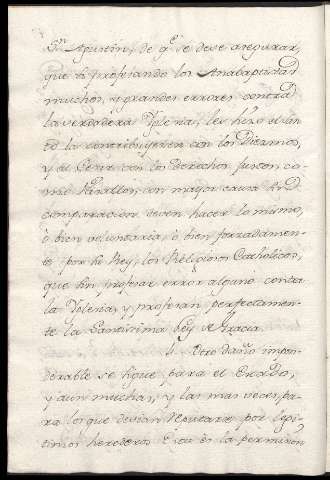 Sn. Agustin, de qe. se deve asegurar,
que si profesando los Anabaptistas
muchos, y grandes errores contra
la verdadera Yglesia, les hizo el
contribuyesen con los Diezmos,
y con los derechos
con mayor causa sin
comparacion deven hacer lo mismo,
ó bien voluntaria, ó bien forzadamen-
te por la Rey, los Religiosos Catholicos,
que sin profesar error alguno contra
la Yglesia, y profesan perfectamen-
te la Santissima Ley de Gracia.
Otro daño impon-
derable se sigue para el Estado,
y aun muchas, y las mas veces, pa-
ra los que devian reputarse por legi-
timos herederos. Esto es la permision